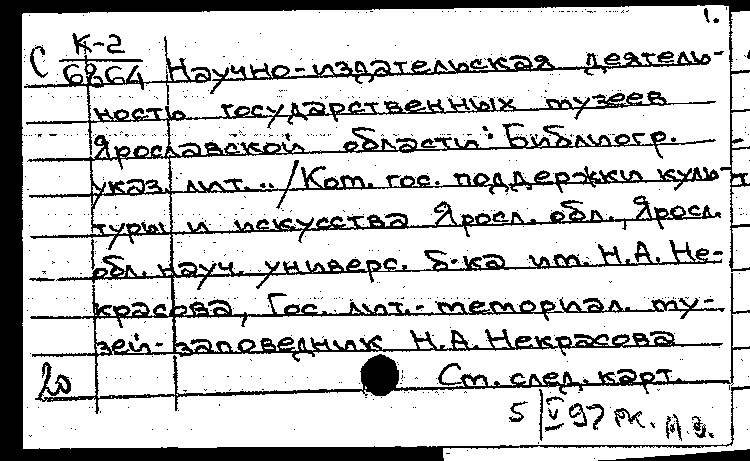 1.
С К-2
6864 Научно-издательская деятель-
ность государственных музеев
Ярославской области: Библиогр.
указ. лит... / Ком. гос. поддержки куль-
туры и искусства Яросл. обл., Яросл.
обл. науч. универс. б-ка им. Н.А. Не-
красова, Гос. лит.-мемориал. му-
зей-заповедник Н.А. Некрасова
20 См. след. карт.
5/V 97 РК.